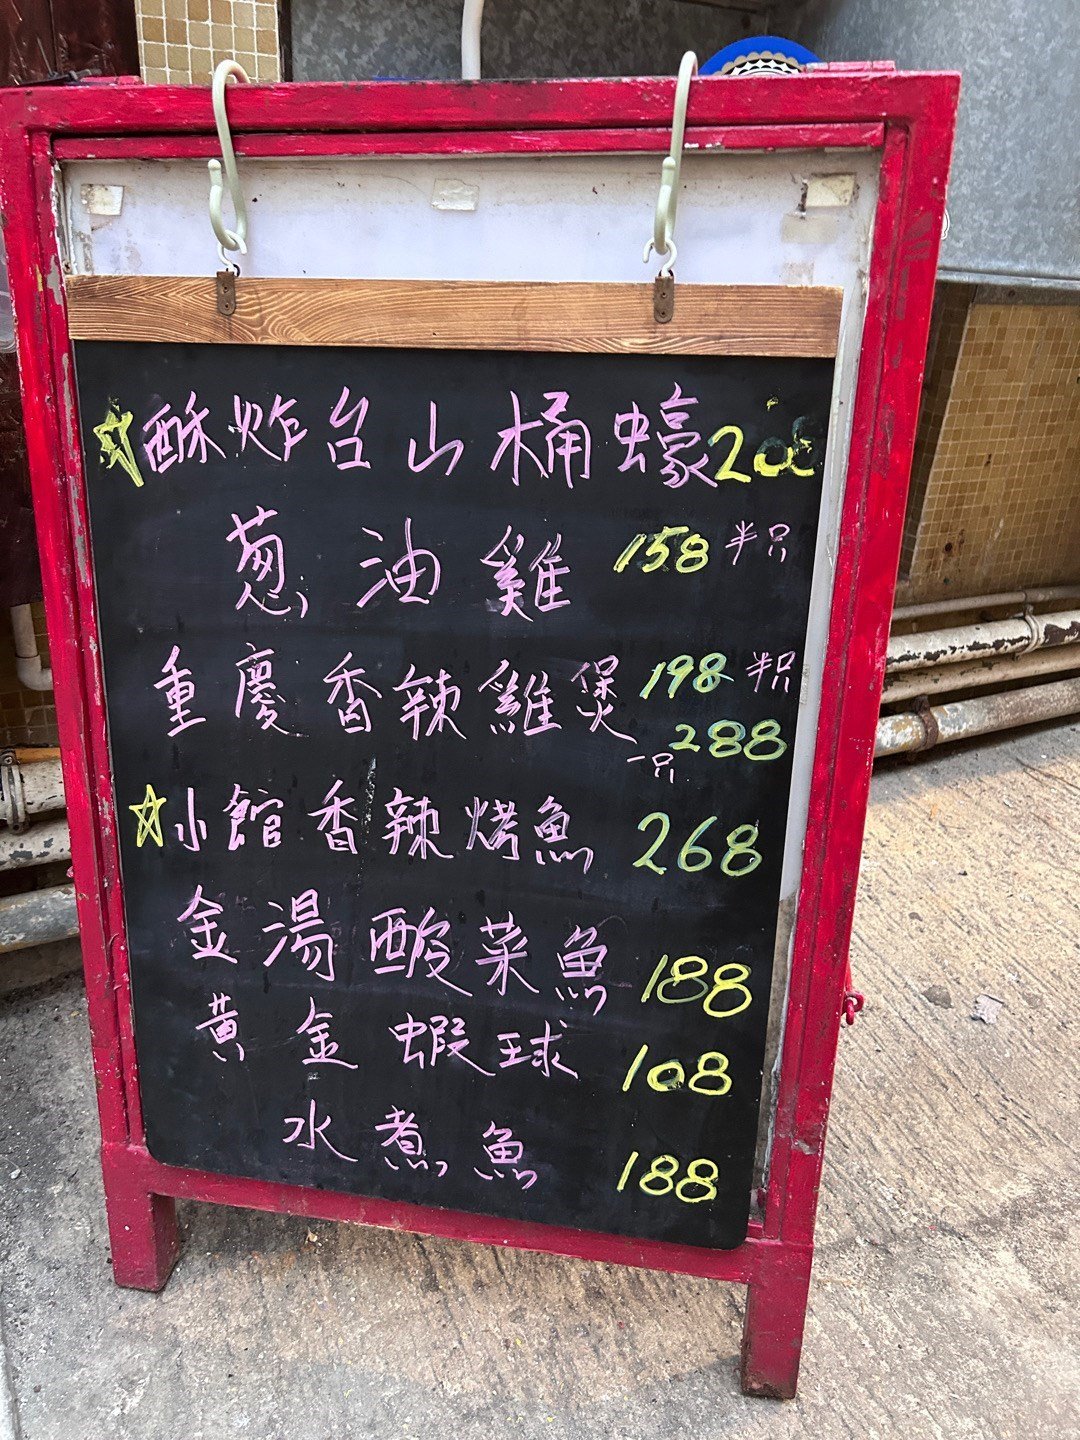 ☆酥炸台山桶蠔
葱油雞 158 半只
重慶香辣雞煲 198 半只
一只 288
☆小館香辣烤魚 268
金湯酸菜魚 188
黃金蝦球 108
水煮魚 188